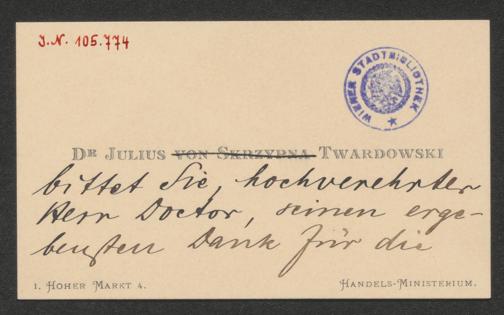 J.N. 105.774
WIENER STADTBIBLIOTHEK
DR JULIUS VON SKRZYPNA TWARDOWSKI
bittet Sie, hochverehrter
Herr Doctor, seinen erge-
bensten Dank für die
1. HOHER MARKT 4.
HANDELS-MINISTERIUM.